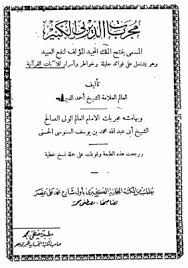 مجربات الديربي الكبير
المسمى بفتح الملك المجيد المؤلف لنفع العبيد
وهو يشتمل على فوائد جليلة وخواطر وأسرار للآيات القرآنية
تأليف
العالم العلامة الشيخ أحمد الديربي
وبهامشه مجربات الإمام العالم الولي الصالح
الشيخ أبي عبد الله محمد بن يوسف السنوسي الحسني
روجعت هذه الطبعة وقوبلت على جملة نسخ خطية
يطلب من